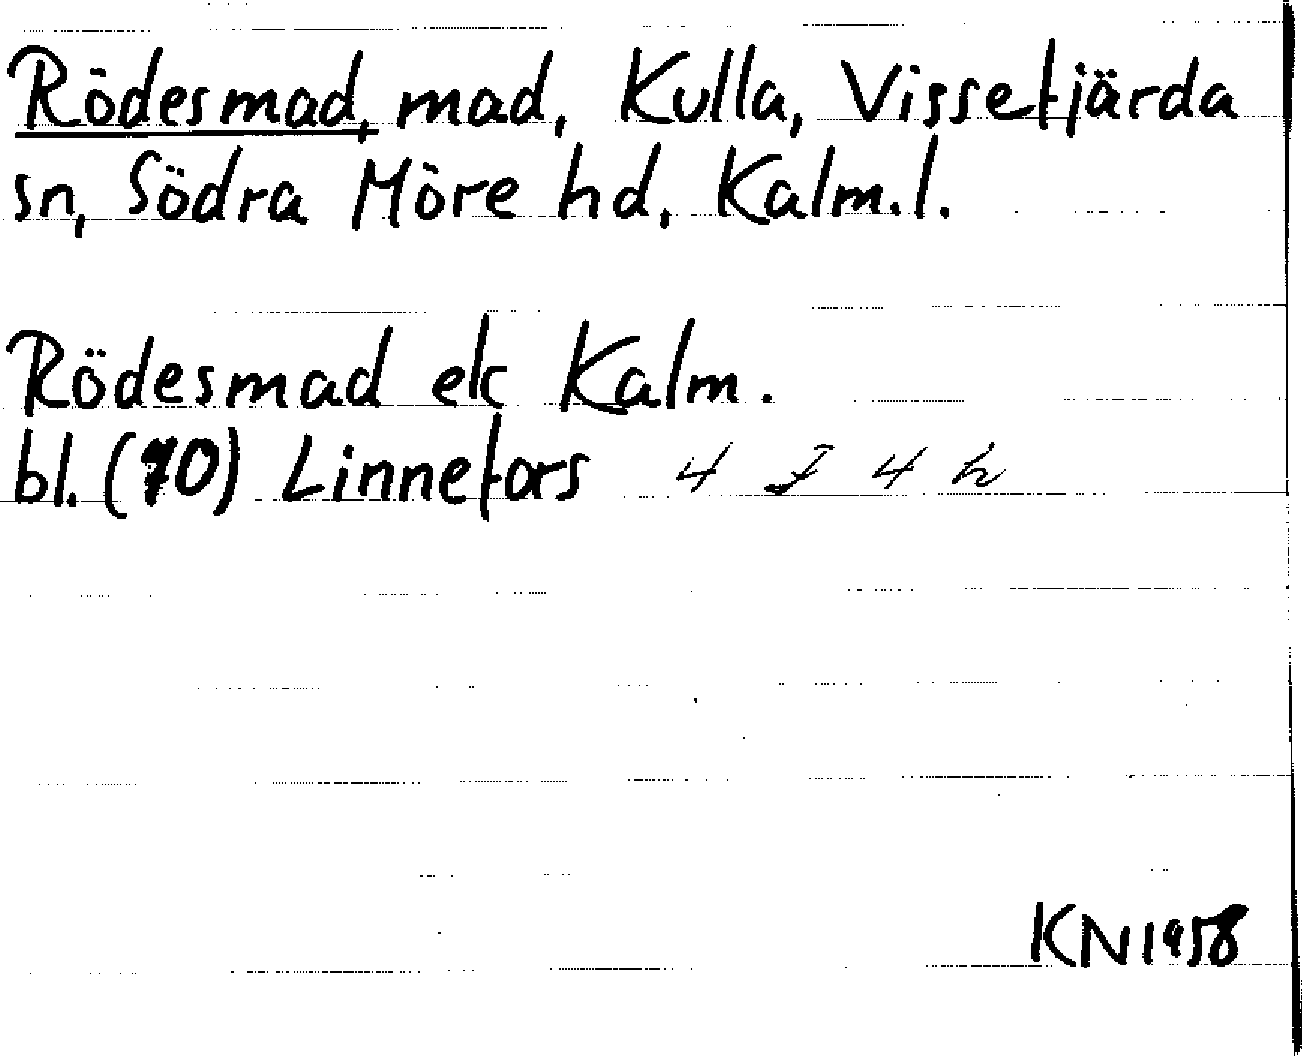 Rödesmad, mad, Kulla, Vissefjärda
sn, Södra Möre hd, Kalm.l.
Rödesmad ek Kalm.
bl. (70) Linnefors 4 F 4 h
KN 1958